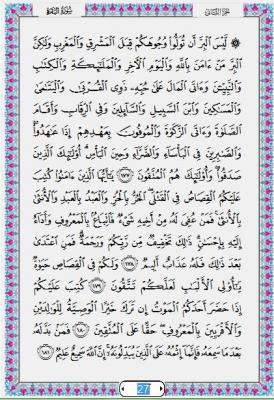 سُورَةُ البَقَرَةِ الجُزْءُ الثَّانِي
۞ لَّيْسَ ٱلْبِرَّ أَن تُوَلُّوا۟ وُجُوهَكُمْ قِبَلَ ٱلْمَشْرِقِ وَٱلْمَغْرِبِ وَلَٰكِنَّ
ٱلْبِرَّ مَنْ ءَامَنَ بِٱللَّهِ وَٱلْيَوْمِ ٱلْءَاخِرِ وَٱلْمَلَٰٓئِكَةِ وَٱلْكِتَٰبِ
وَٱلنَّبِيِّۦنَ وَءَاتَى ٱلْمَالَ عَلَىٰ حُبِّهِۦ ذَوِى ٱلْقُرْبَىٰ وَٱلْيَتَٰمَىٰ
وَٱلْمَسَٰكِينَ وَٱبْنَ ٱلسَّبِيلِ وَٱلسَّآئِلِينَ وَفِى ٱلرِّقَابِ وَأَقَامَ
ٱلصَّلَوٰةَ وَءَاتَى ٱلزَّكَوٰةَ وَٱلْمُوفُونَ بِعَهْدِهِمْ إِذَا عَٰهَدُوا۟ۖ
وَٱلصَّٰبِرِينَ فِى ٱلْبَأْسَآءِ وَٱلضَّرَّآءِ وَحِينَ ٱلْبَأْسِۗ أُو۟لَٰٓئِكَ ٱلَّذِينَ
صَدَقُوا۟ۖ وَأُو۟لَٰٓئِكَ هُمُ ٱلْمُتَّقُونَ ١٧٧ يَٰٓأَيُّهَا ٱلَّذِينَ ءَامَنُوا۟ كُتِبَ
عَلَيْكُمُ ٱلْقِصَاصُ فِى ٱلْقَتْلَىۖ ٱلْحُرُّ بِٱلْحُرِّ وَٱلْعَبْدُ بِٱلْعَبْدِ وَٱلْأُنثَىٰ
بِٱلْأُنثَىٰۚ فَمَنْ عُفِىَ لَهُۥ مِنْ أَخِيهِ شَىْءٌ فَٱتِّبَاعٌۢ بِٱلْمَعْرُوفِ وَأَدَآءٌ
إِلَيْهِ بِإِحْسَٰنٍۗ ذَٰلِكَ تَخْفِيفٌ مِّن رَّبِّكُمْ وَرَحْمَةٌۗ فَمَنِ ٱعْتَدَىٰ
بَعْدَ ذَٰلِكَ فَلَهُۥ عَذَابٌ أَلِيمٌ ١٧٨ وَلَكُمْ فِى ٱلْقِصَاصِ حَيَوٰةٌ
يَٰٓأُو۟لِى ٱلْأَلْبَٰبِ لَعَلَّكُمْ تَتَّقُونَ ١٧٩ كُتِبَ عَلَيْكُمْ
إِذَا حَضَرَ أَحَدَكُمُ ٱلْمَوْتُ إِن تَرَكَ خَيْرًا ٱلْوَصِيَّةُ لِلْوَٰلِدَيْنِ
وَٱلْأَقْرَبِينَ بِٱلْمَعْرُوفِۖ حَقًّا عَلَى ٱلْمُتَّقِينَ ١٨٠ فَمَنۢ بَدَّلَهُۥ
بَعْدَ مَا سَمِعَهُۥ فَإِنَّمَآ إِثْمُهُۥ عَلَى ٱلَّذِينَ يُبَدِّلُونَهُۥٓۚ إِنَّ ٱللَّهَ سَمِيعٌ عَلِيمٌ ١٨١
27